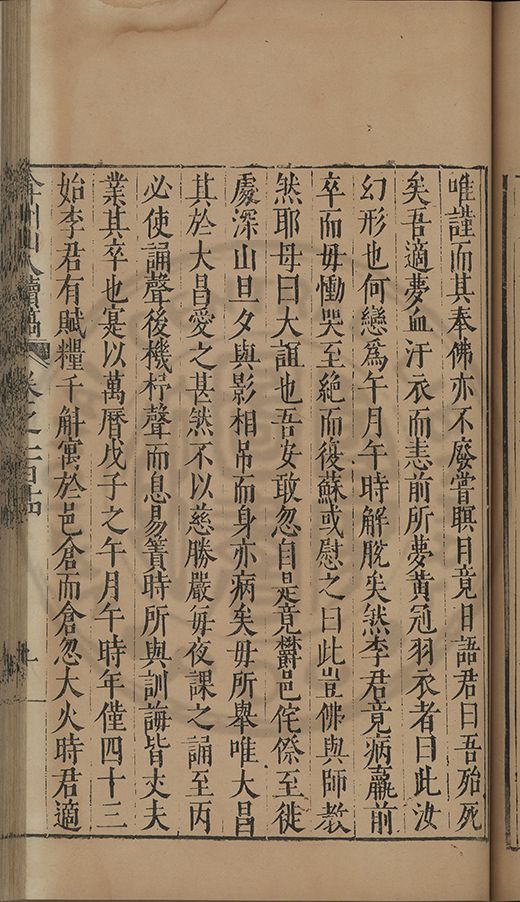 唯謹而其奉佛亦不廢嘗瞑目竟日語君曰吾殆死
矣吾適夢血汙衣而恚前所夢黃冠羽衣者曰此汝
幻形也何戀爲午月午時解脫矣然李君竟病羸前
卒而毋慟哭至絕而復蘇或慰之曰此豈佛與師教
然耶母曰大誼也吾安敢忽自是竟欝邑侘傺至徙
處深山旦夕與影相吊而身亦病矣毋所舉唯大昌
其於大昌愛之甚然不以慈勝嚴每夜課之誦至丙
必使誦聲後機杼聲而息易簀時所與訓誨皆丈夫
業其卒也寔以萬曆戊子之午月午時年僅四十三
始李君有賦糧千斛寓於邑倉而倉忽大火時君適
弇州山人續稿 卷之一百